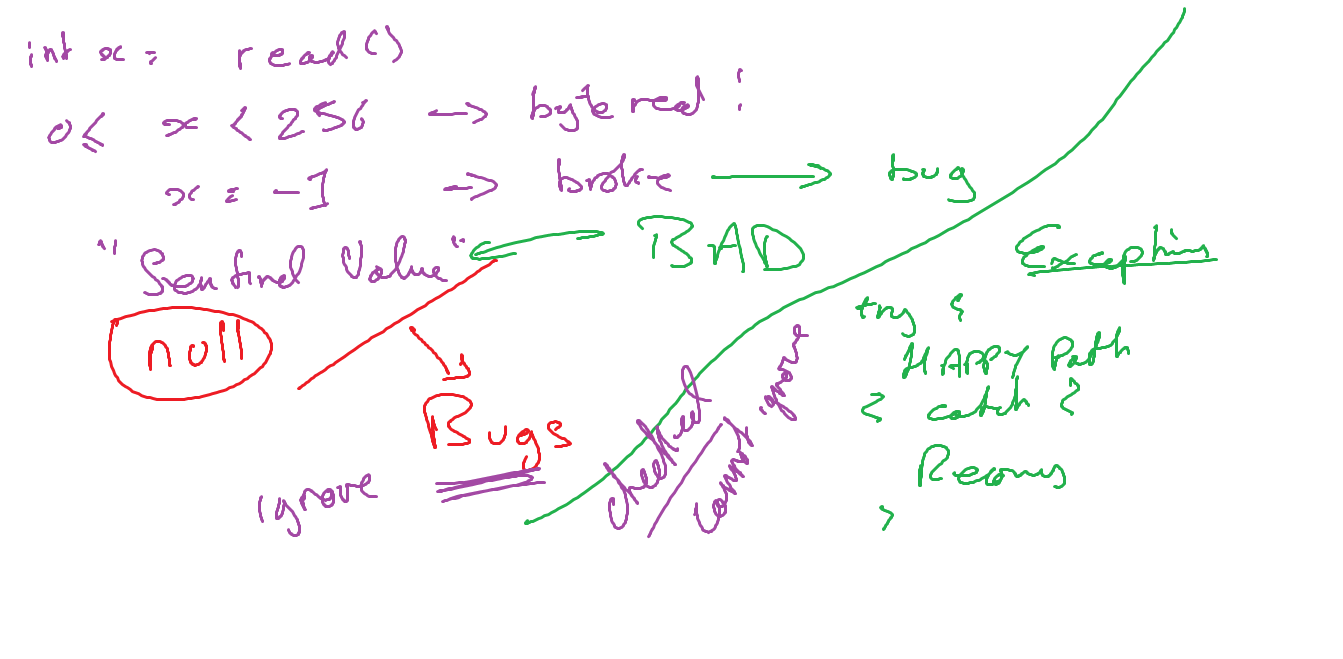 int x = read()
0 ≤ x < 256 → byte read!
x = -1 → broke → bug
"Sentinel Value" BAD
null
Bugs
ignore
checked
cannot ignore
Exceptions
try {
HAPPY Path
} catch {
Recovery
}